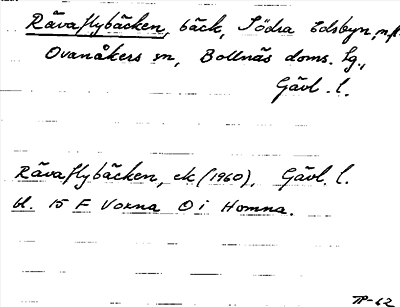 Rävaflybäcken, bäck, Södra Edsbyn, n.fl.
Ovanåkers sn, Bollnäs doms. lg.,
Gävl. l.
Rävaflybäcken, ek (1960), Gävl. l.
bl. 15 F Voxna O i Homna.
TP-62